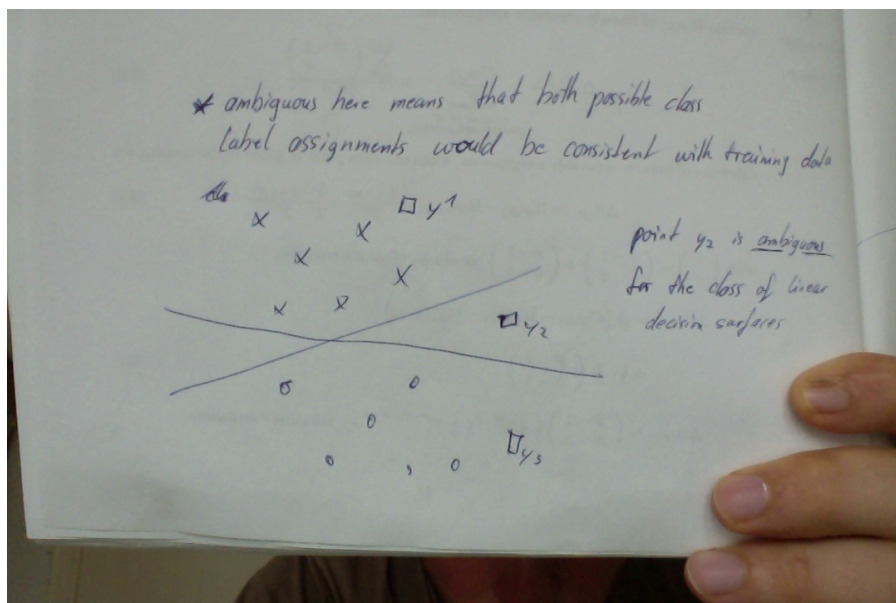 * ambiguous here means that both possible class
label assignments would be consistent with training data
y1
point y2 is ambiguous
for the class of linear
decision surfaces
y2
y3